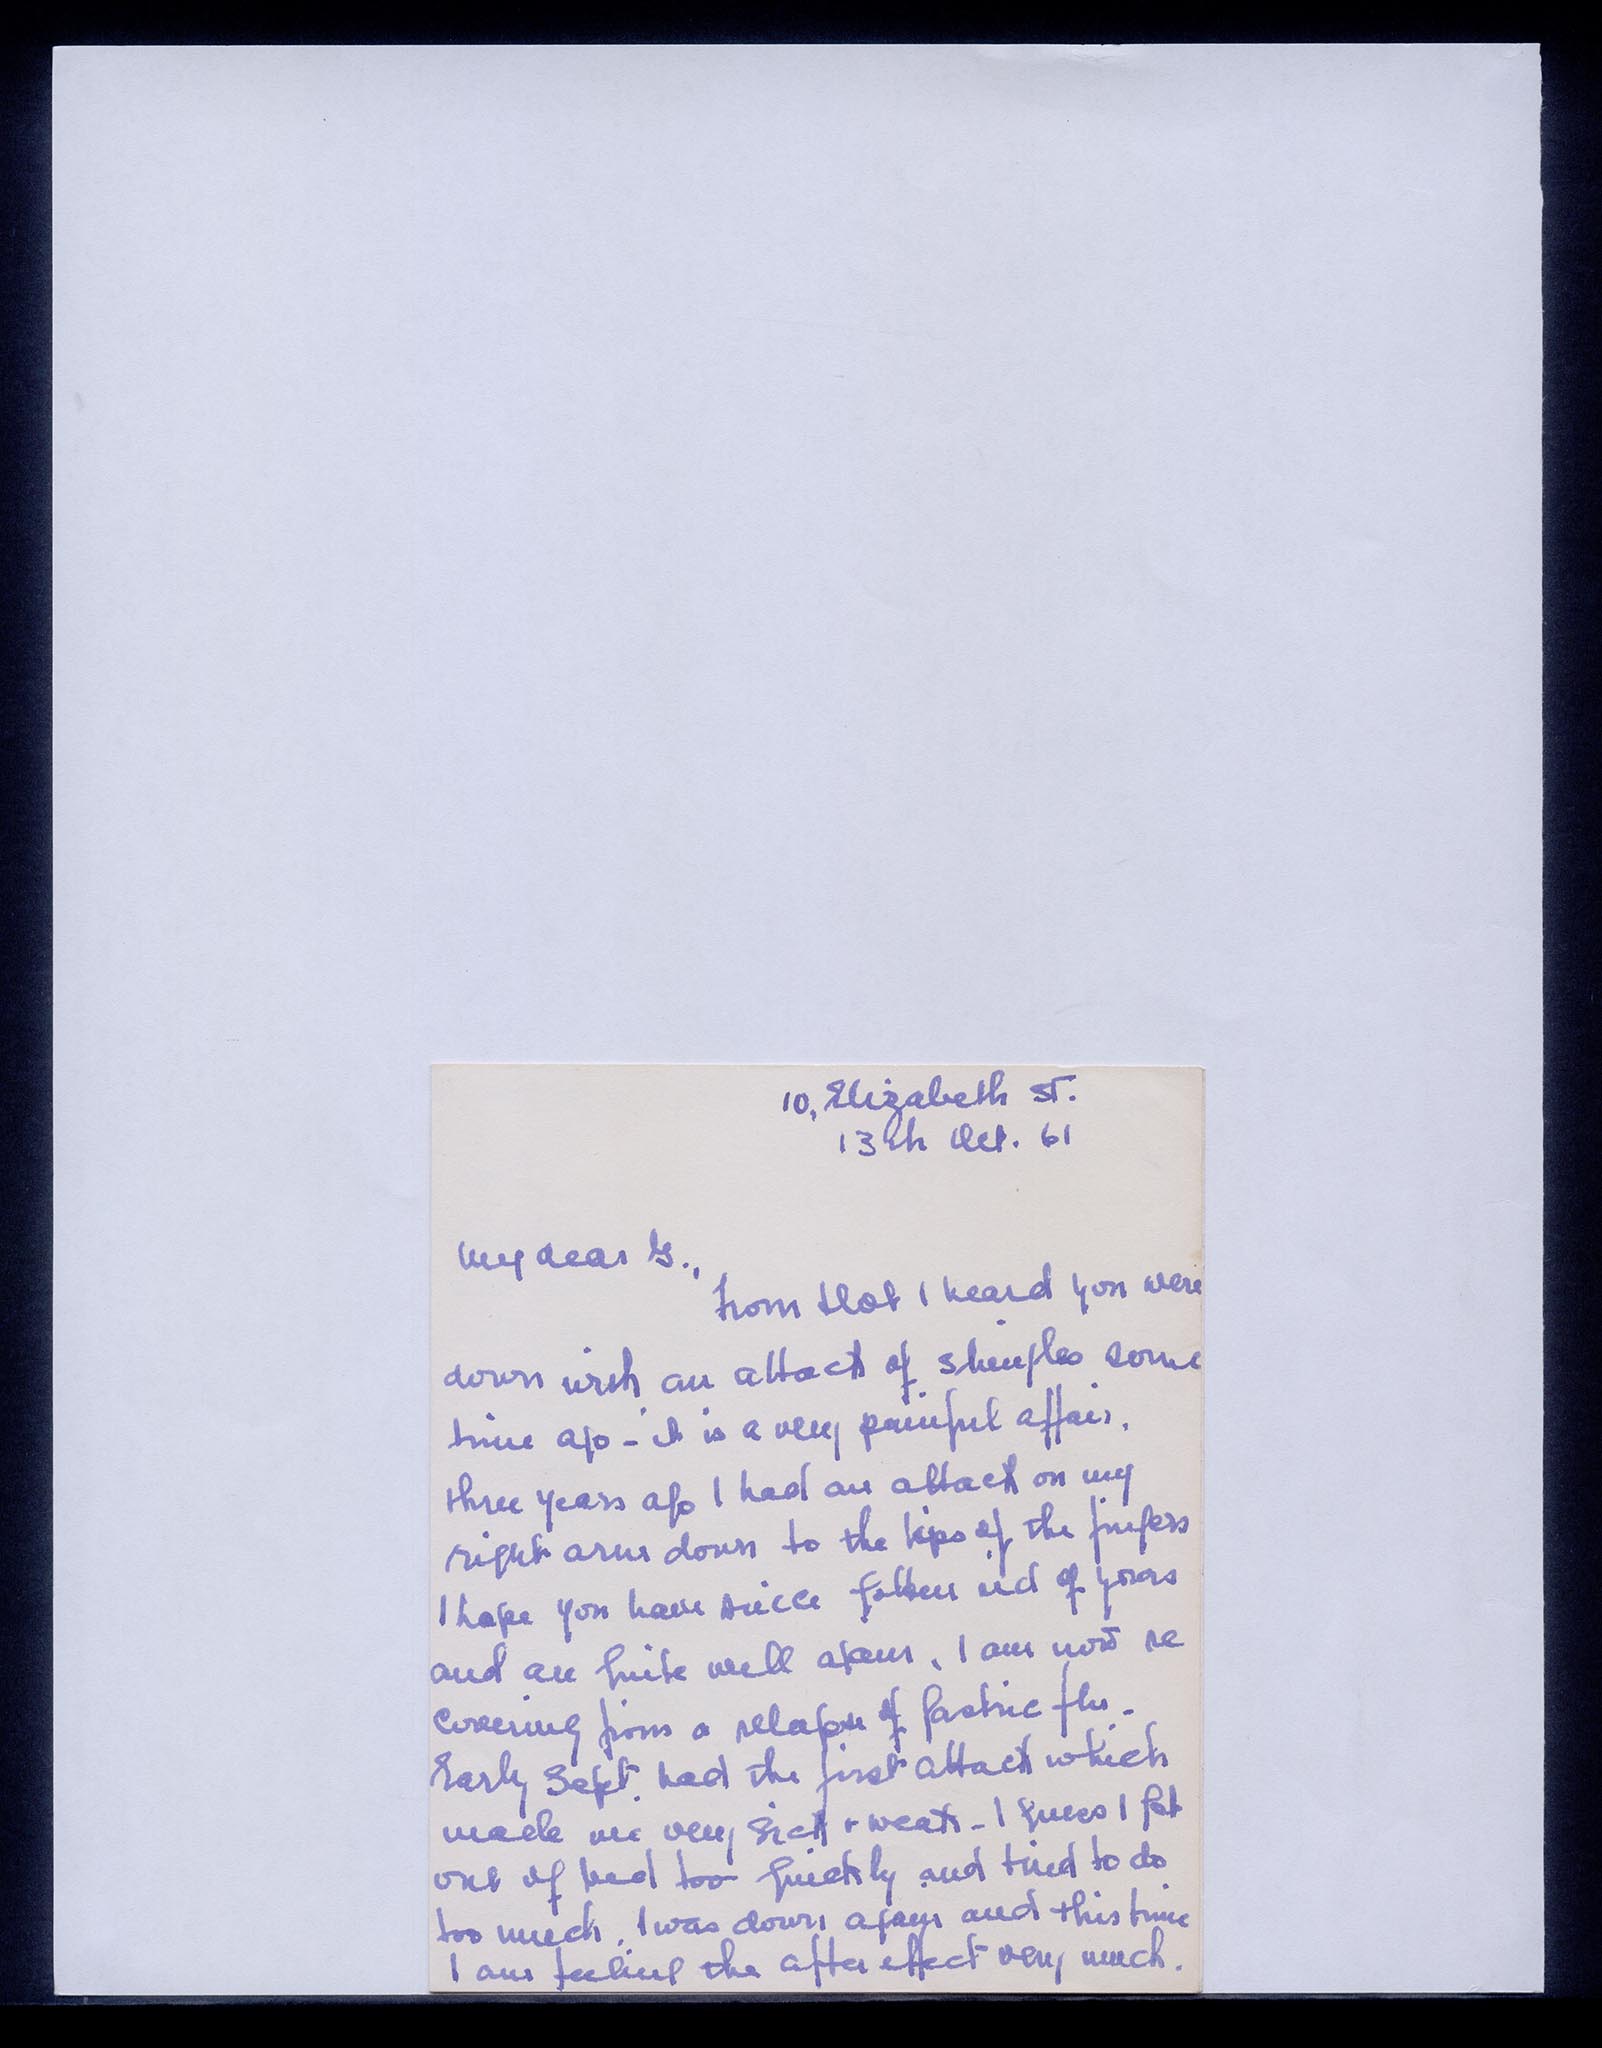 10, Elizabeth St.
13th Oct. 61
My dear G.,
From that I heard you were
down with an attack of shingles some
time ago - it is a very painful affair.
three years ago I had an attack on my
right arm down to the tips of the fingers
I hope you have since gotten rid of yours
and are quite well again. I am now re
covering from a relapse of gastric flu.
Early Sept. had the first attack which
made me very sick + weak - I guess I got
out of bed too quickly and tried to do
too much. I was down again and this time
I am feeling the after effect very much.